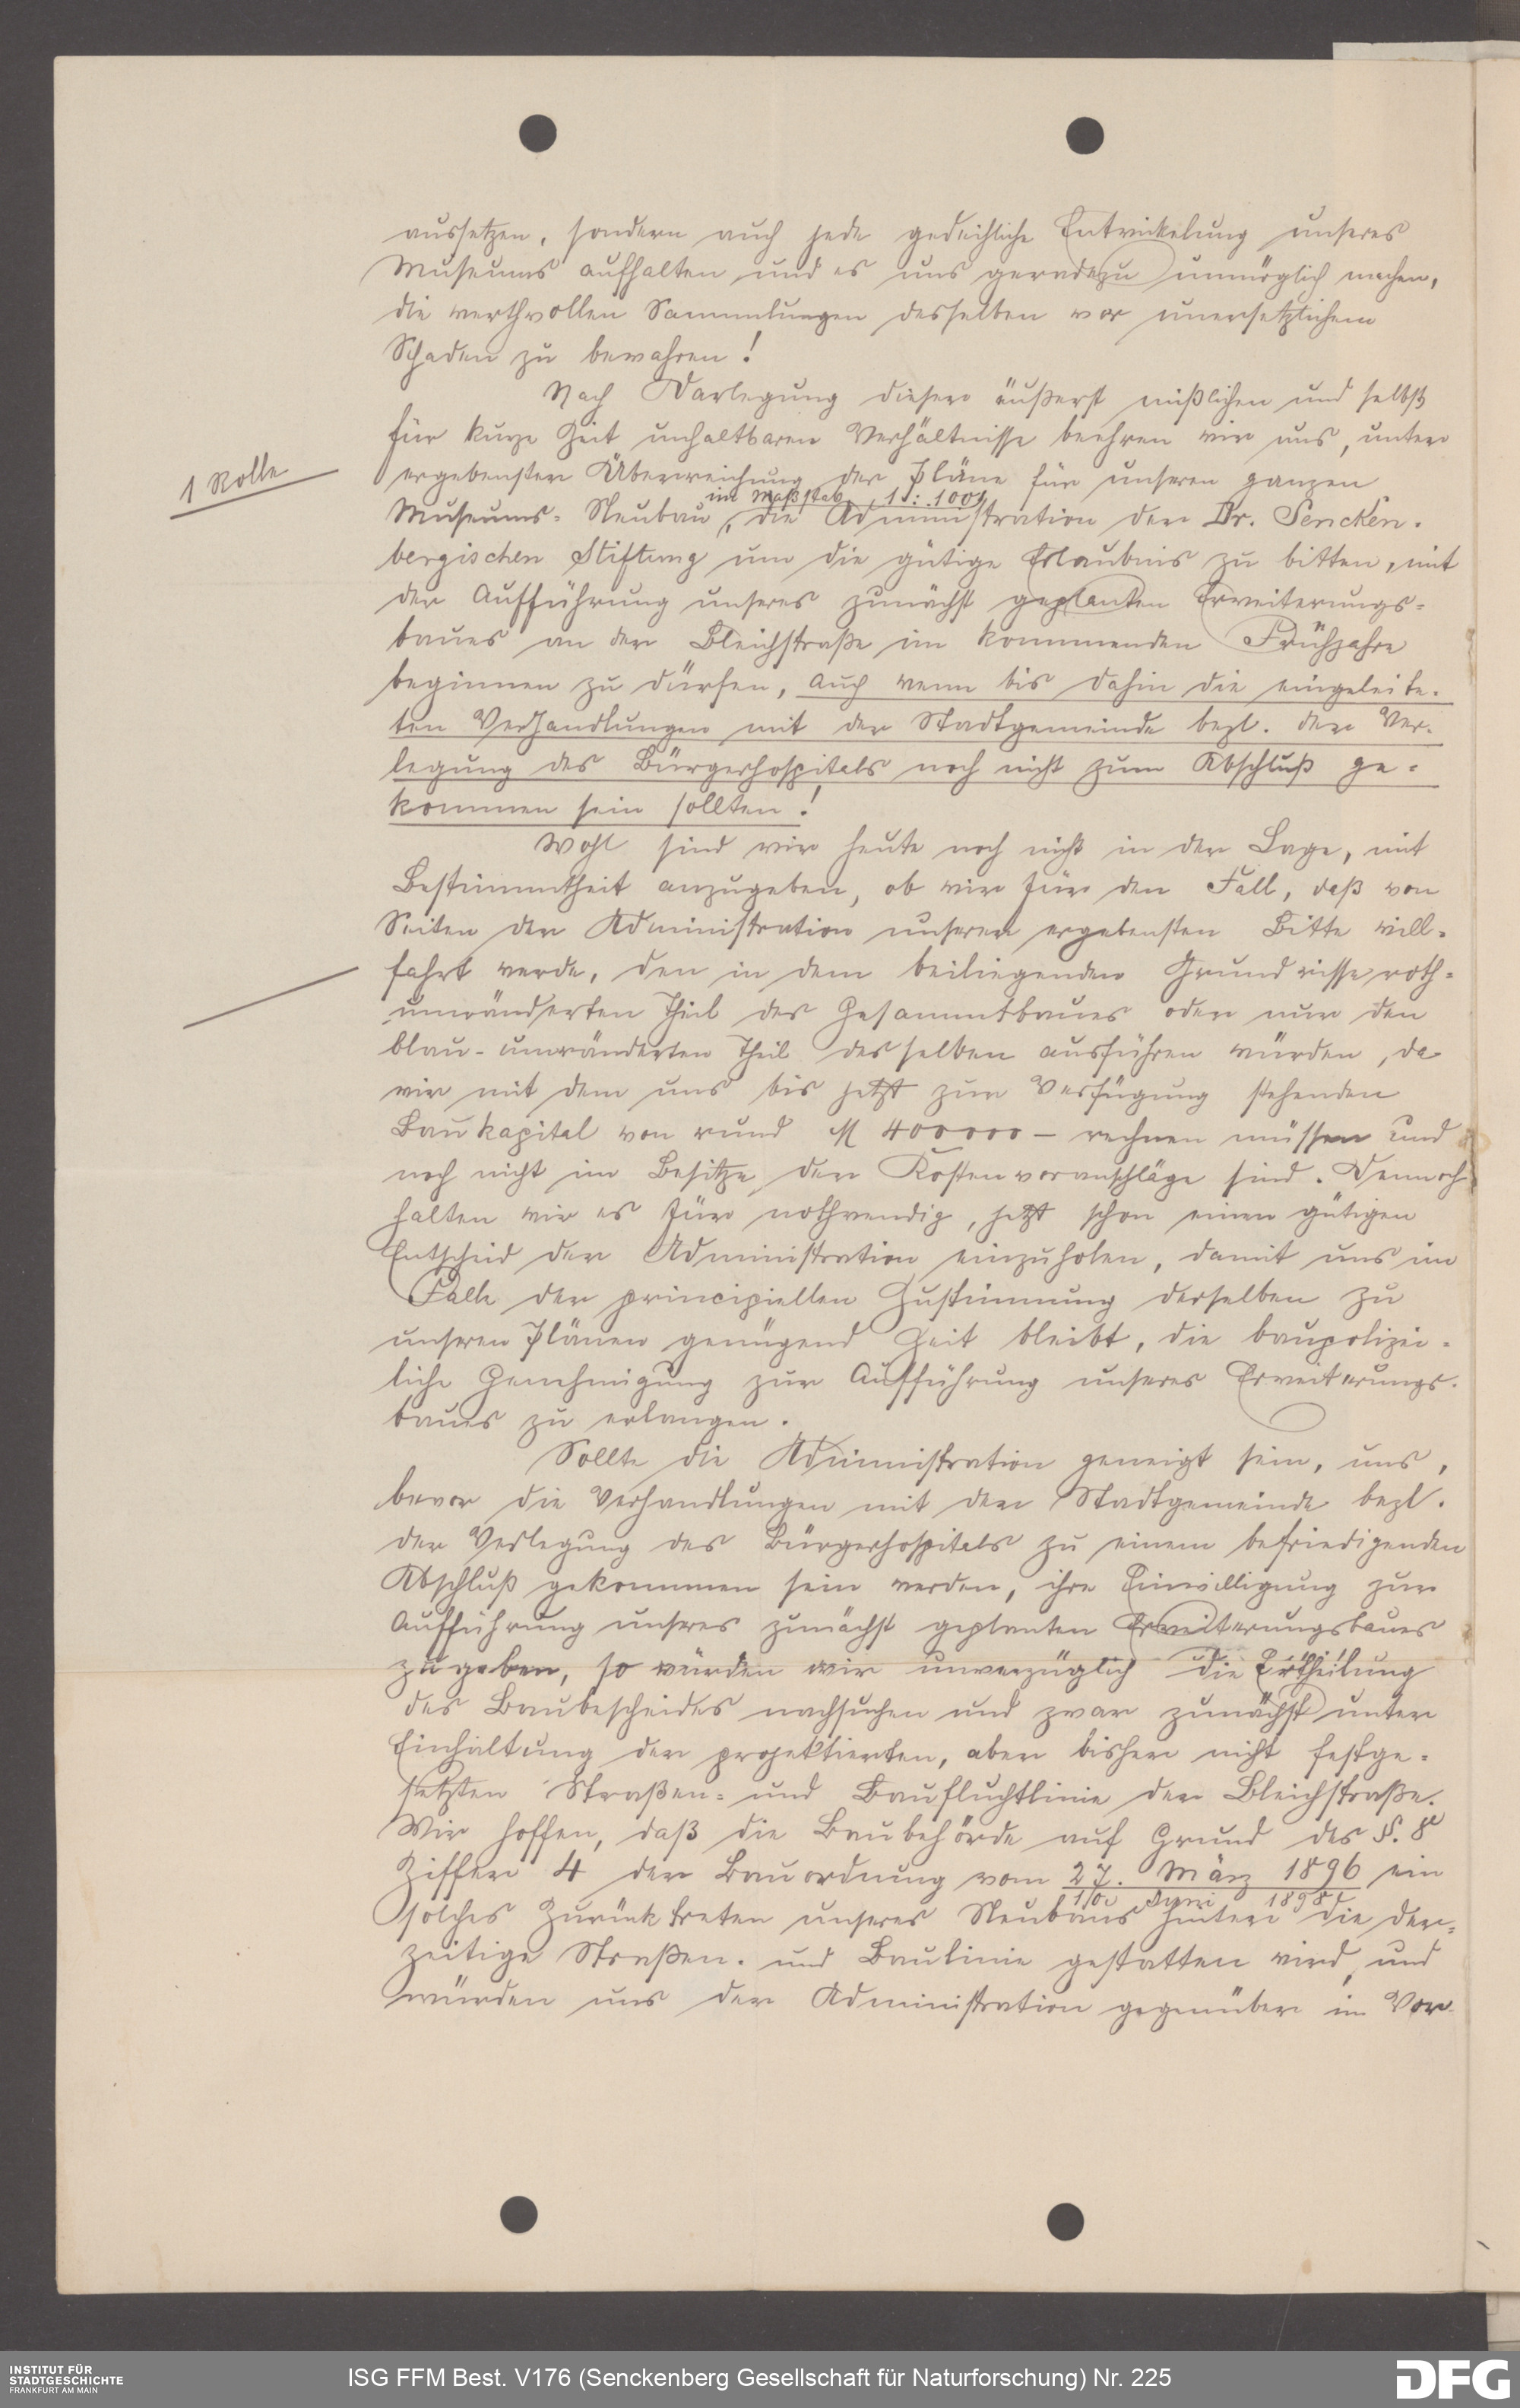 aussetzen, sondern auch jede gedeihliche Entwickelung unseres
Museums aufhalten und es uns geradezu unmöglich machen,
die werthvollen Sammlungen desselben vor unersetzlichem
Schaden zu bewahren!
Nach Darlegung dieser äußerst mißlichen und selbst
für kurze Zeit unhaltbaren Verhältnisse beehren wir uns, unter
1 Rolle
ergebenster Überreichung der Pläne für unseren ganzen
im Maßstab 1 : 100,
Museums-Neubau, die Administration der Dr. Sencken-
bergischen Stiftung um die gütige Erlaubnis zu bitten, mit
der Aufführung unseres zunächst geplanten Erweiterungs-
baues an der Bleichstraße im kommenden Frühjahre
beginnen zu dürfen, auch wenn bis dahin die eingeleite-
ten Verhandlungen mit der Stadtgemeinde bezl. der Ver-
legung des Bürgerhospitals noch nicht zum Abschluß ge-
kommen sein sollten!
Wohl sind wir heute noch nicht in der Lage, mit
Bestimmtheit anzugeben, ob wir für den Fall, daß von
Seiten der Administration unserer ergebensten Bitte will-
fahrt werde, den in dem beiliegenden Grundrisse roth-
umränderten Theil des Gesammtbaues oder nur den
blau-umränderten Theil desselben ausführen würden, da
wir mit dem uns bis jetzt zur Verfügung stehenden
Baukapital von rund M 400000 – rechnen müssen und
noch nicht im Besitze der Kostenvoranschläge sind. Dennoch
halten wir es für nothwendig, jetzt schon einen gütigen
Entscheid der Administration einzuholen, damit uns im
Falle der principiellen Zustimmung derselben zu
unseren Plänen genügend Zeit bleibt, die baupolizei-
liche Genehmigung zur Aufführung unseres Erweiterungs-
baues zu erlangen.
Sollte die Administration geneigt sein, uns,
bevor die Verhandlungen mit der Stadtgemeinde bezl.
der Verlegung des Bürgerhospitals zu einem befriedigenden
Abschluß gekommen sein werden, ihre Einwilligung zur
Aufführung unseres zunächst geplanten Erweiterungsbaues
zu geben, so würden wir unverzüglich die Ertheilung
des Baubescheides nachsuchen und zwar zunächst unter
Einhaltung der projektierten, aber bisher nicht festge-
setzten Straßen- und Baufluchtlinie der Bleichstraße.
Wir hoffen, daß die Baubehörde auf Grund des §. 8
Ziffer 4 der Bauordnung vom 27. März 1896 ein
Juni 1898
solches Zurücktreten unseres Neubaus hinter die der-
zeitige Straßen- und Baulinie gestatten wird, und
würden uns der Administration gegenüber im Vor-
INSTITUT FÜR
STADTGESCHICHTE
FRANKFURT AM MAIN
ISG FFM Best. V176 (Senckenberg Gesellschaft für Naturforschung) Nr. 225
DFG